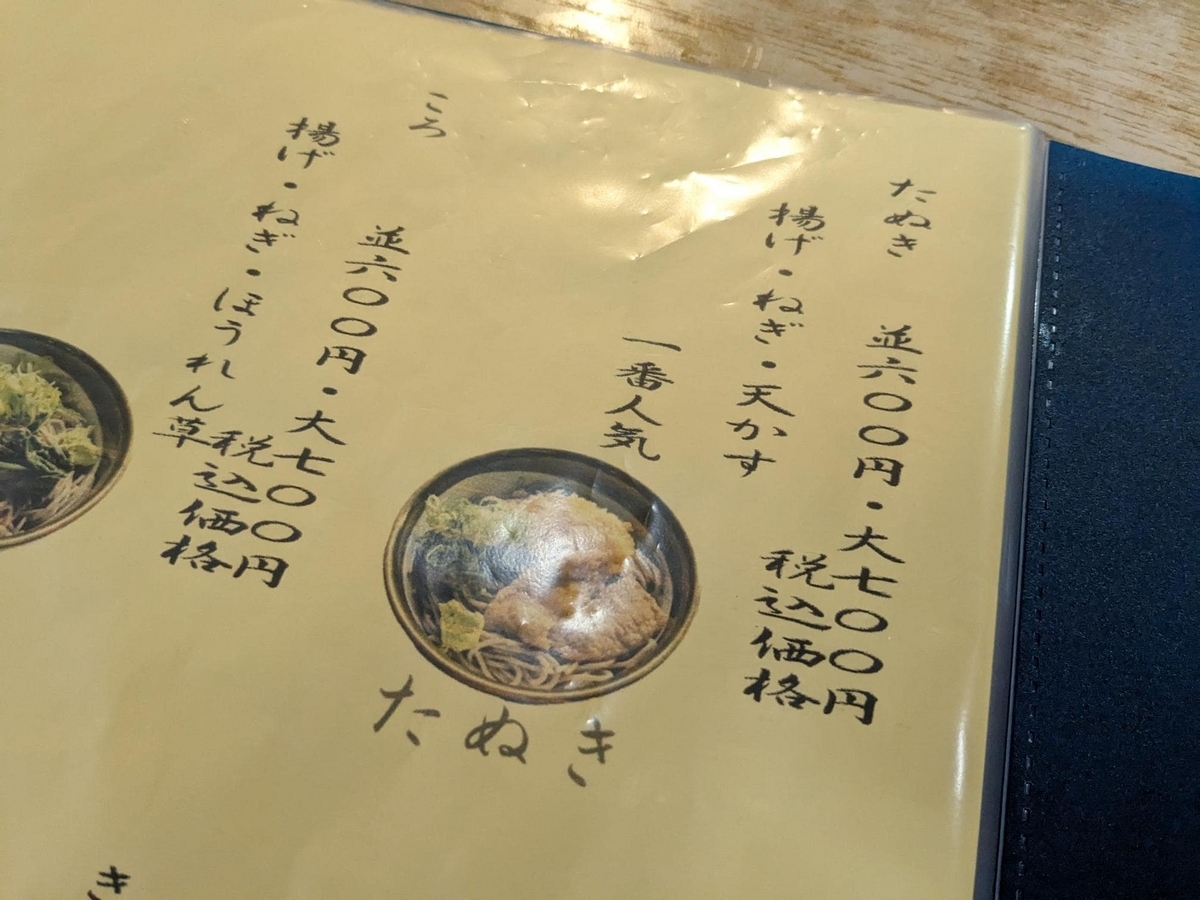 たぬき
並六〇〇円・大七〇〇円
税込価格
揚げ・ねぎ・天かす
一番人気
たぬき
ころ
並六〇〇円・大七〇〇円
税込価格
揚げ・ねぎ・ほうれん草
き